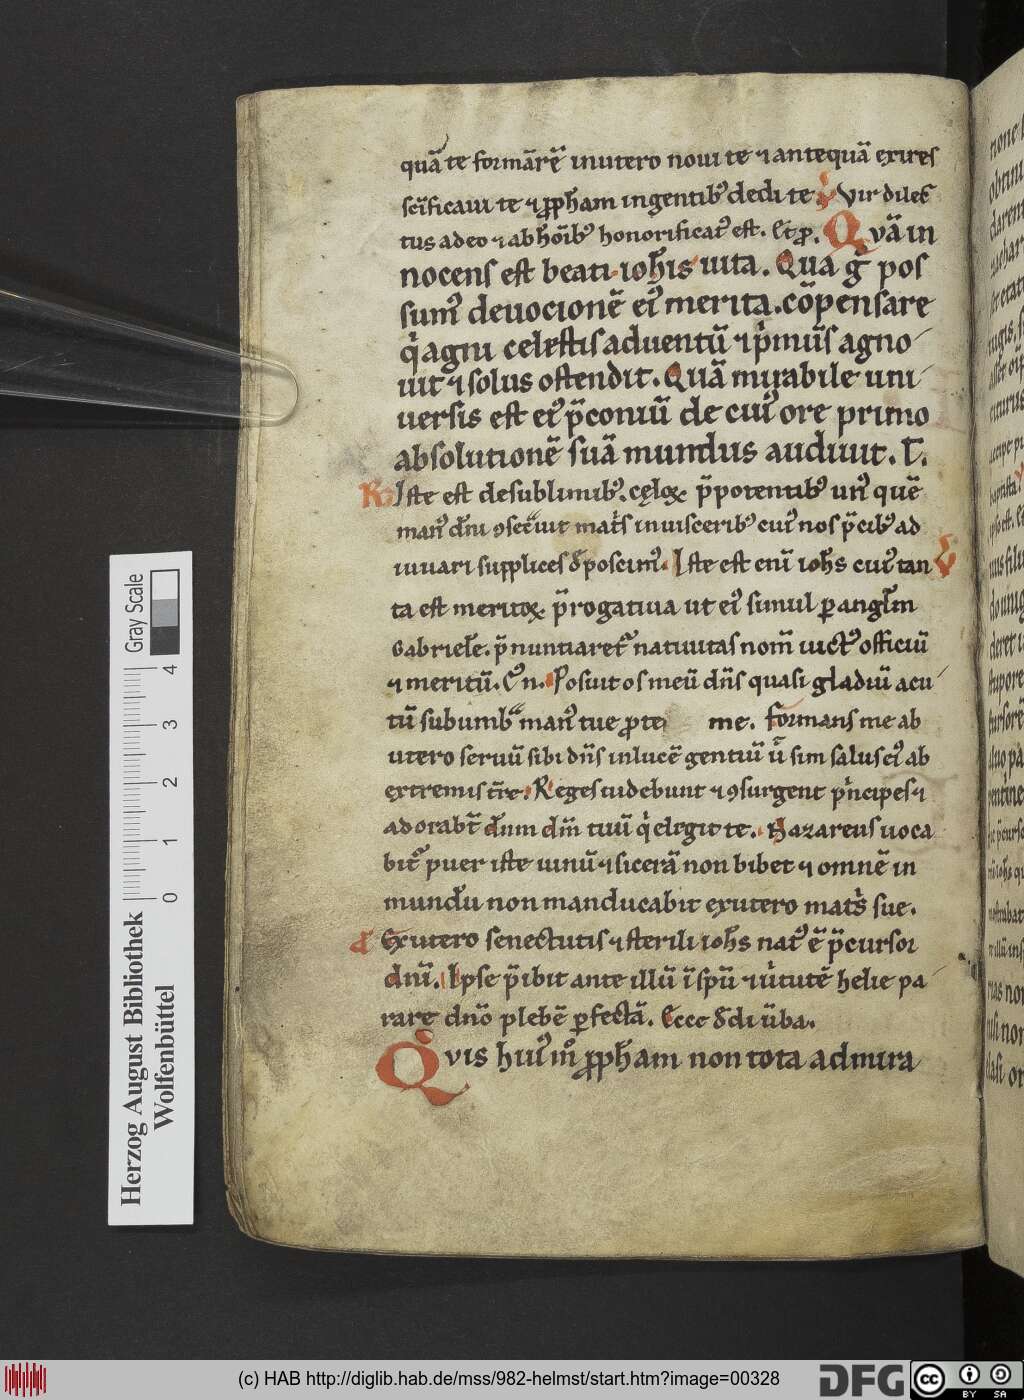 quā te formārē inutero noui te ⁊ antequā exires
scīficaui te ⁊ ꝓpħam in gentibꝰ dedi te ℣ Vir dilec
tus a deo ⁊ ab hōībꝰ honorificatꝰ est. Et ꝓ. Qvā in
nocens est beati ioħis uita. Qua g̊ pos
sumꝰ deuocionē eiꝰ merita. cōpensare
q̇ agni celestis aduentū ⁊ p̍mūs agno
uit ⁊ solus ostendit. Quā mirabile uni
uersis est eiꝰ p̄coniū de cuiꝰ ore primo
absolutionē suā mundus audiuit. T.
R Iste est de sublimibꝰ. cęloꝝ p̄potentibꝰ unꝰ quē
manꝰ dn̄i ꝯsecͣuit mat̄s in uisceribꝰ cuiꝰ nos p̄cibꝰ ad
iuuari supplices d̄poscimꝰ. Iste est enī ioħs cuiꝰ tan ℣
ta est meritoꝝ p̄rogatiua ut eiꝰ simul ꝑ angłm
Gabriele. p̄nuntiaret᷑ natiuitas nom̄ uictꝰ officiū
⁊ meritū. Posuit os meū dn̄s quasi gladiū acu
tū sub umbͣ manꝰ tue ꝓte me. formans me ab
utero seruū sibi dn̄s in lucē gentiū ut sim salus eiꝰ ab
extremis tr̄e. Reges uidebunt ⁊ ꝯsurgent p̍ncipes ⁊
adorabt̄ dn̄m dm̄ tuū q̇ elegit te. Nazareus uoca
bit᷑ puer iste uinū ⁊ sicerā non bibet ⁊ omnē in
mundū non manducabit ex utero mat̍s sue.
Ex utero senectutis ⁊ sterili ioħs natꝰ ē p̄cursor
dn̄i. Ipse p̄ibit ante illū ī spū ⁊ ū̍tutē helie pa
rare dn̄o plebē ꝑfectā. Ecce ddi ūba.
Qvis huiꝰ mͦ ꝓpħam non tota admira
Herzog August Bibliothek
Wolfenbüttel
0 1 2 3 4
Gray Scale
(c) HAB http://diglib.hab.de/mss/982-helmst/start.htm?image=00328
DFG
cc BY SA